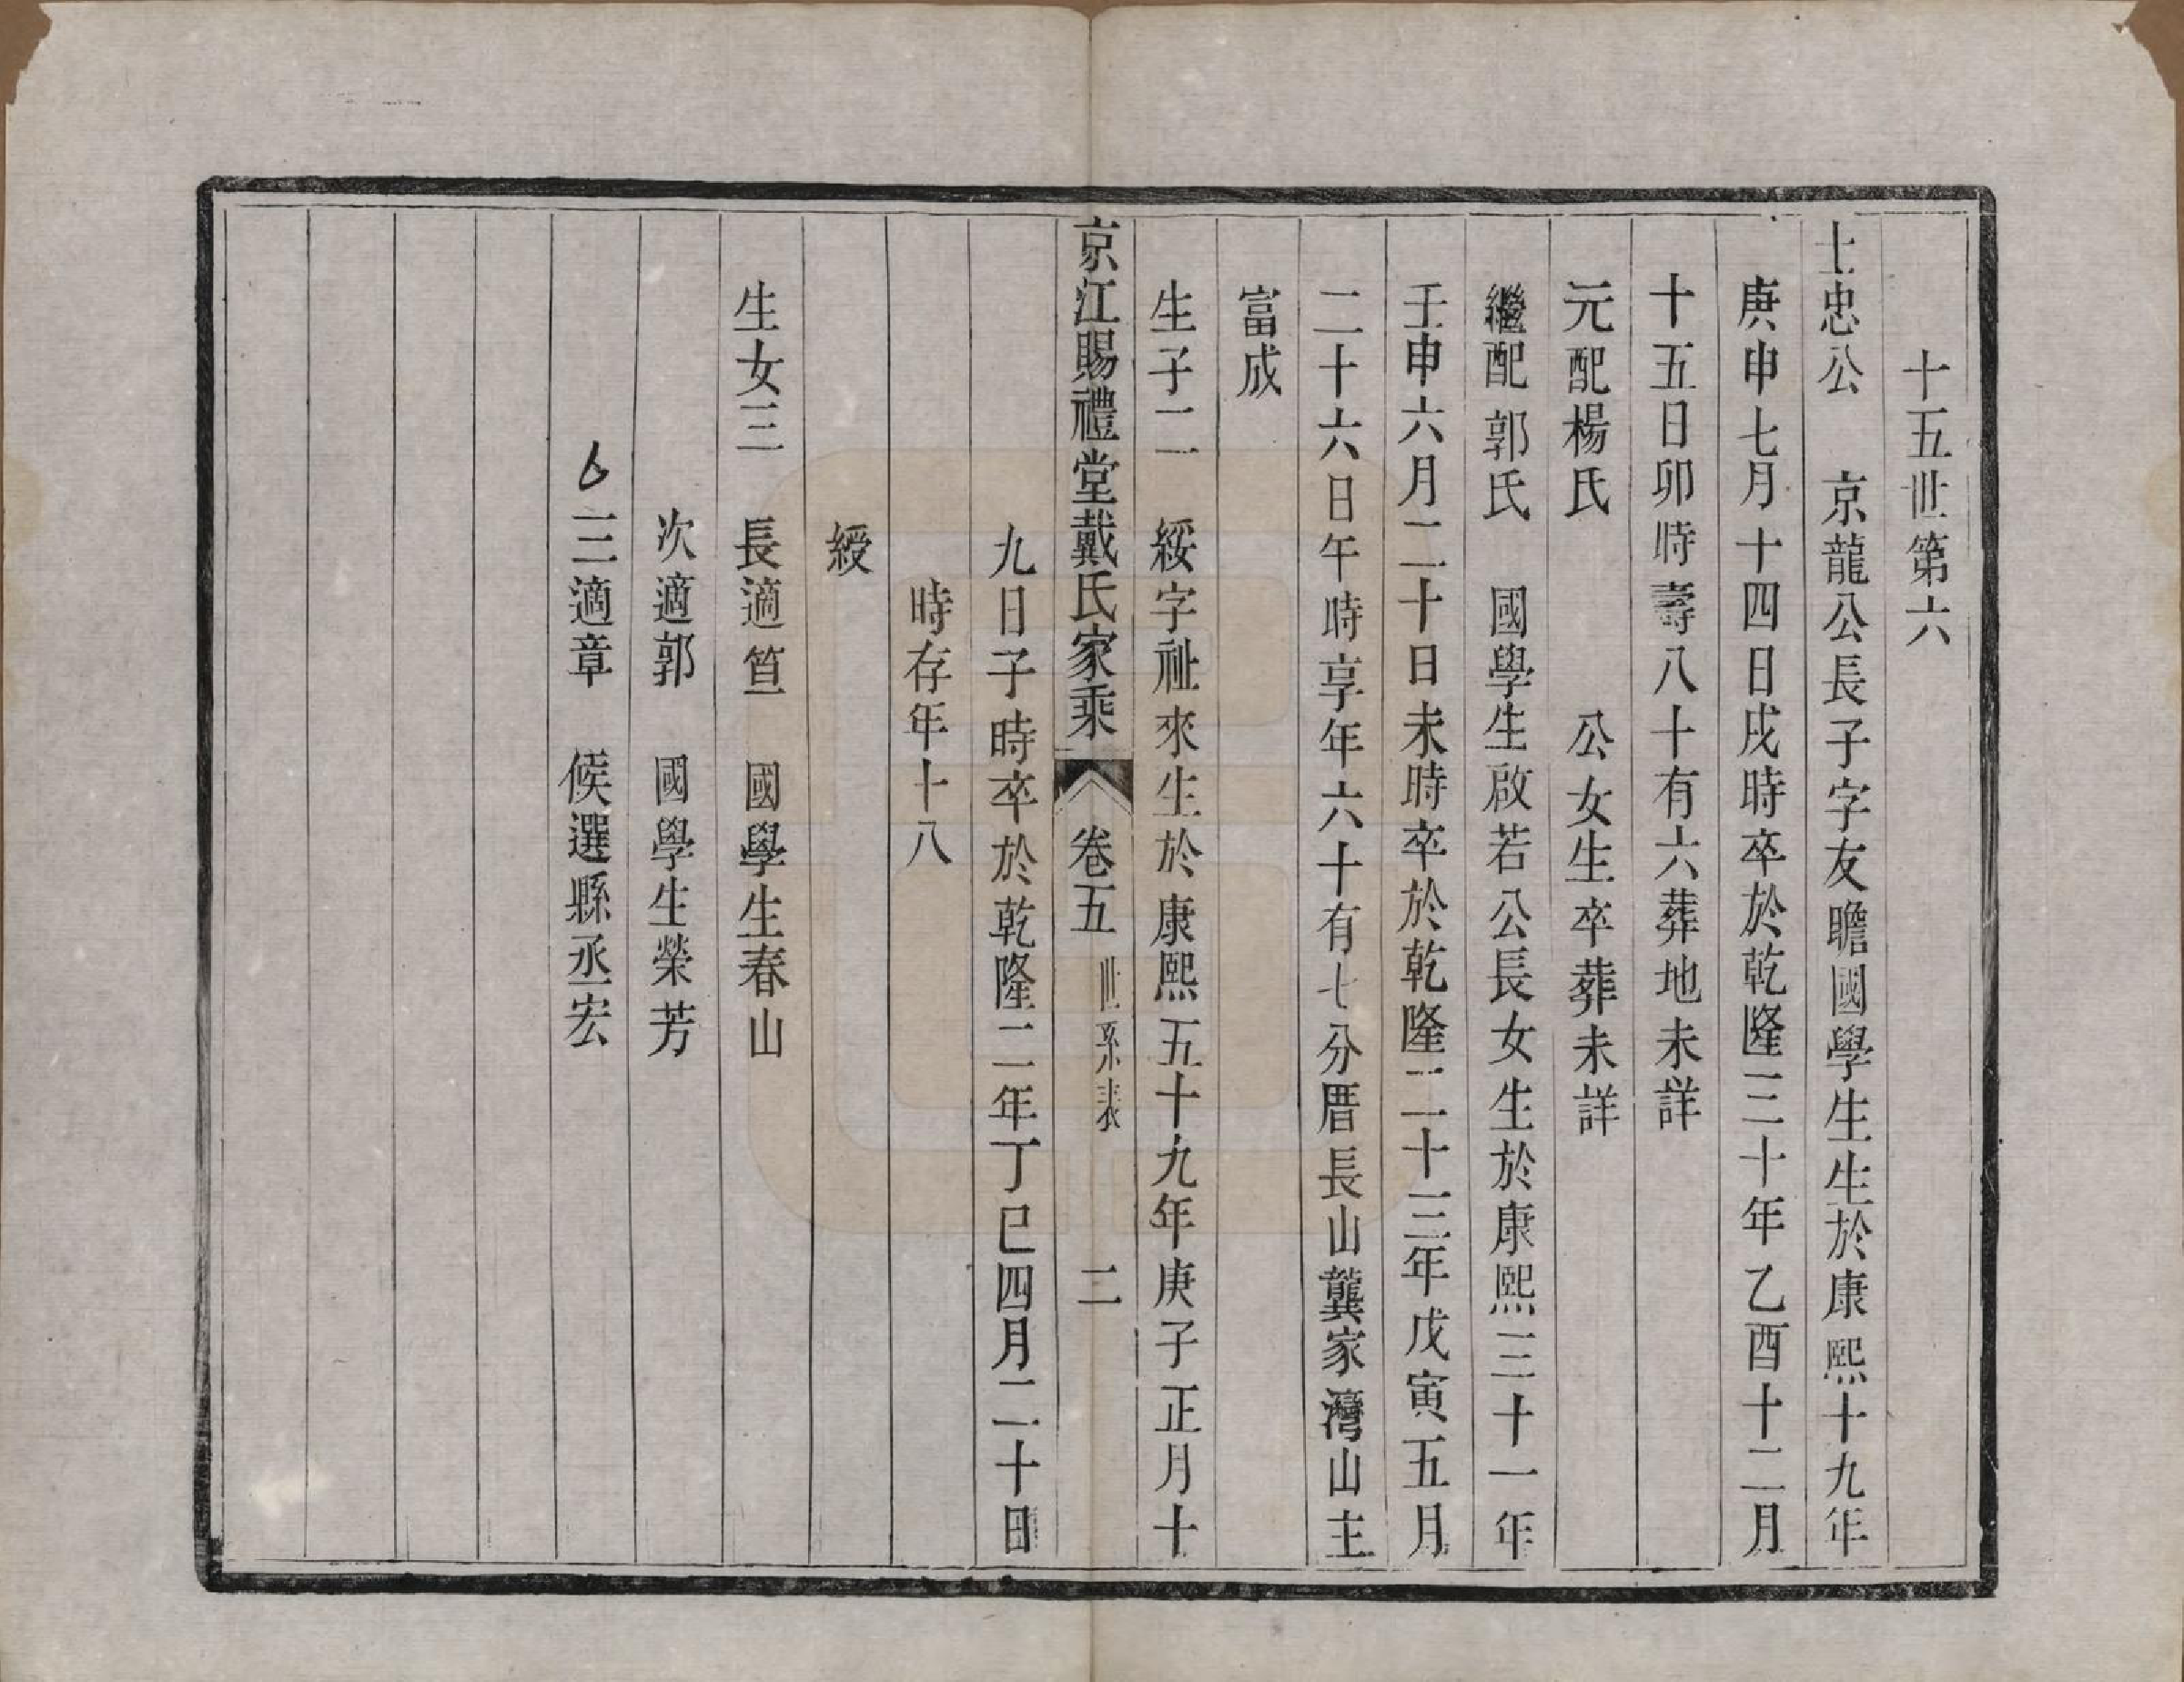 十五世第六
士忠公　京龍公長子字友瞻國學生生於康熙十九年
庚申七月十四日戌時卒於乾隆三十年乙酉十二月
十五日卯時壽八十有六葬地未詳
元配楊氏　　公女生卒葬未詳
繼配郭氏　國學生啟若公長女生於康熙三十一年
壬申六月二十日未時卒於乾隆二十三年戊寅五月
二十六日午時享年六十有七分厝長山龔家灣山主
富成
生子二　綏字祉來生於康熙五十九年庚子正月十
京江賜禮堂戴氏家乘　卷五　世系表　二
九日子時卒於乾隆二年丁巳四月二十日
時存年十八
綬
生女三　長適笪　國學生春山
次適郭　國學生榮芳
三適章　候選縣丞宏